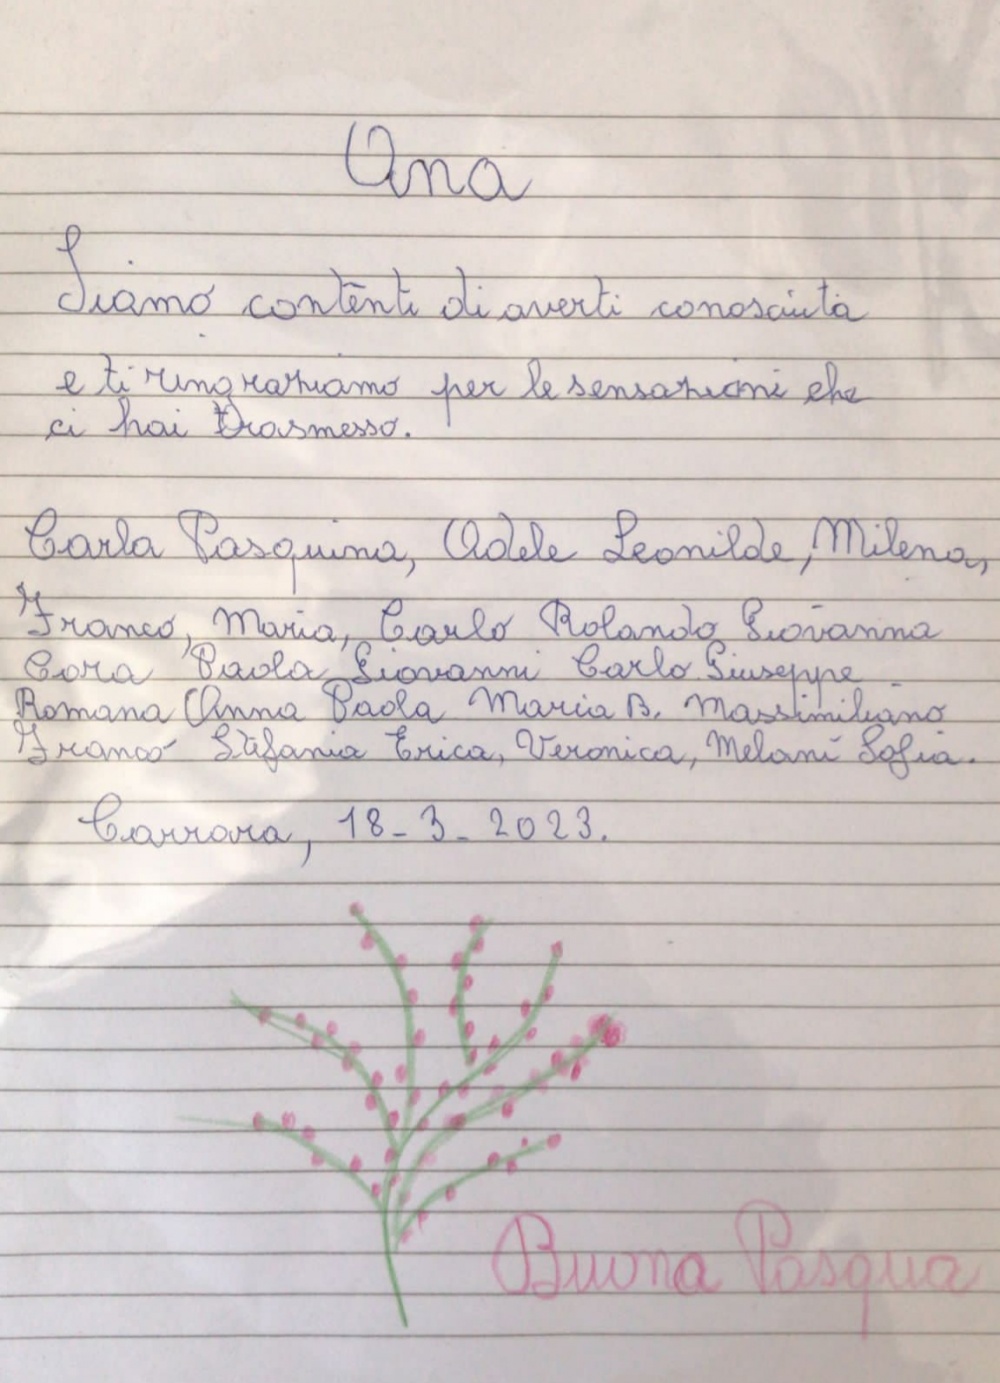 Ana
Siamo contenti di averti conosciuta
e ti ringraziamo per le sensazioni che
ci hai trasmesso.
Carla Pasquina, Adele Leonilde, Milena,
Franco, Maria, Carlo Rolando Giovanna
Cora Paola Giovanni Carlo Giuseppe
Romana Anna Paola Maria B. Massimiliano
Franco Stefania Erica, Veronica, Melani Sofia.
Carrara, 18-3-2023.
Buona Pasqua